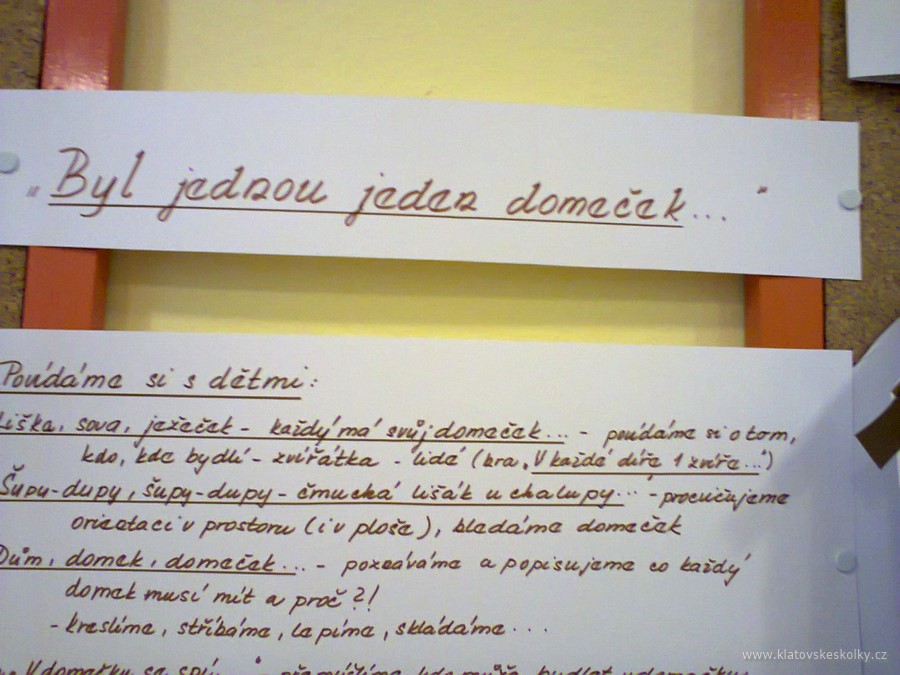 „Byl jednou jeden domeček..."
Povídáme si s dětmi:
Liška, sova, ježeček - každý má svůj domeček... - povídáme si o tom,
kdo, kde bydlí - zvířátka - lidé (hra „V každé díře 1 zvíře...")
Šupy-dupy, šupy-dupy - čmuchá lišák u chalupy... - procvičujeme
orientaci v prostoru (i v ploše), hledáme domeček
Dům, domek, domeček... - poznáváme a popisujeme co každý
domek musí mít a proč?!
- kreslíme, stříháme, lepíme, skládáme...
V domečku se spí..." - přemýšlíme, kdo může bydlet v domečku
www.klatovskeskolky.cz